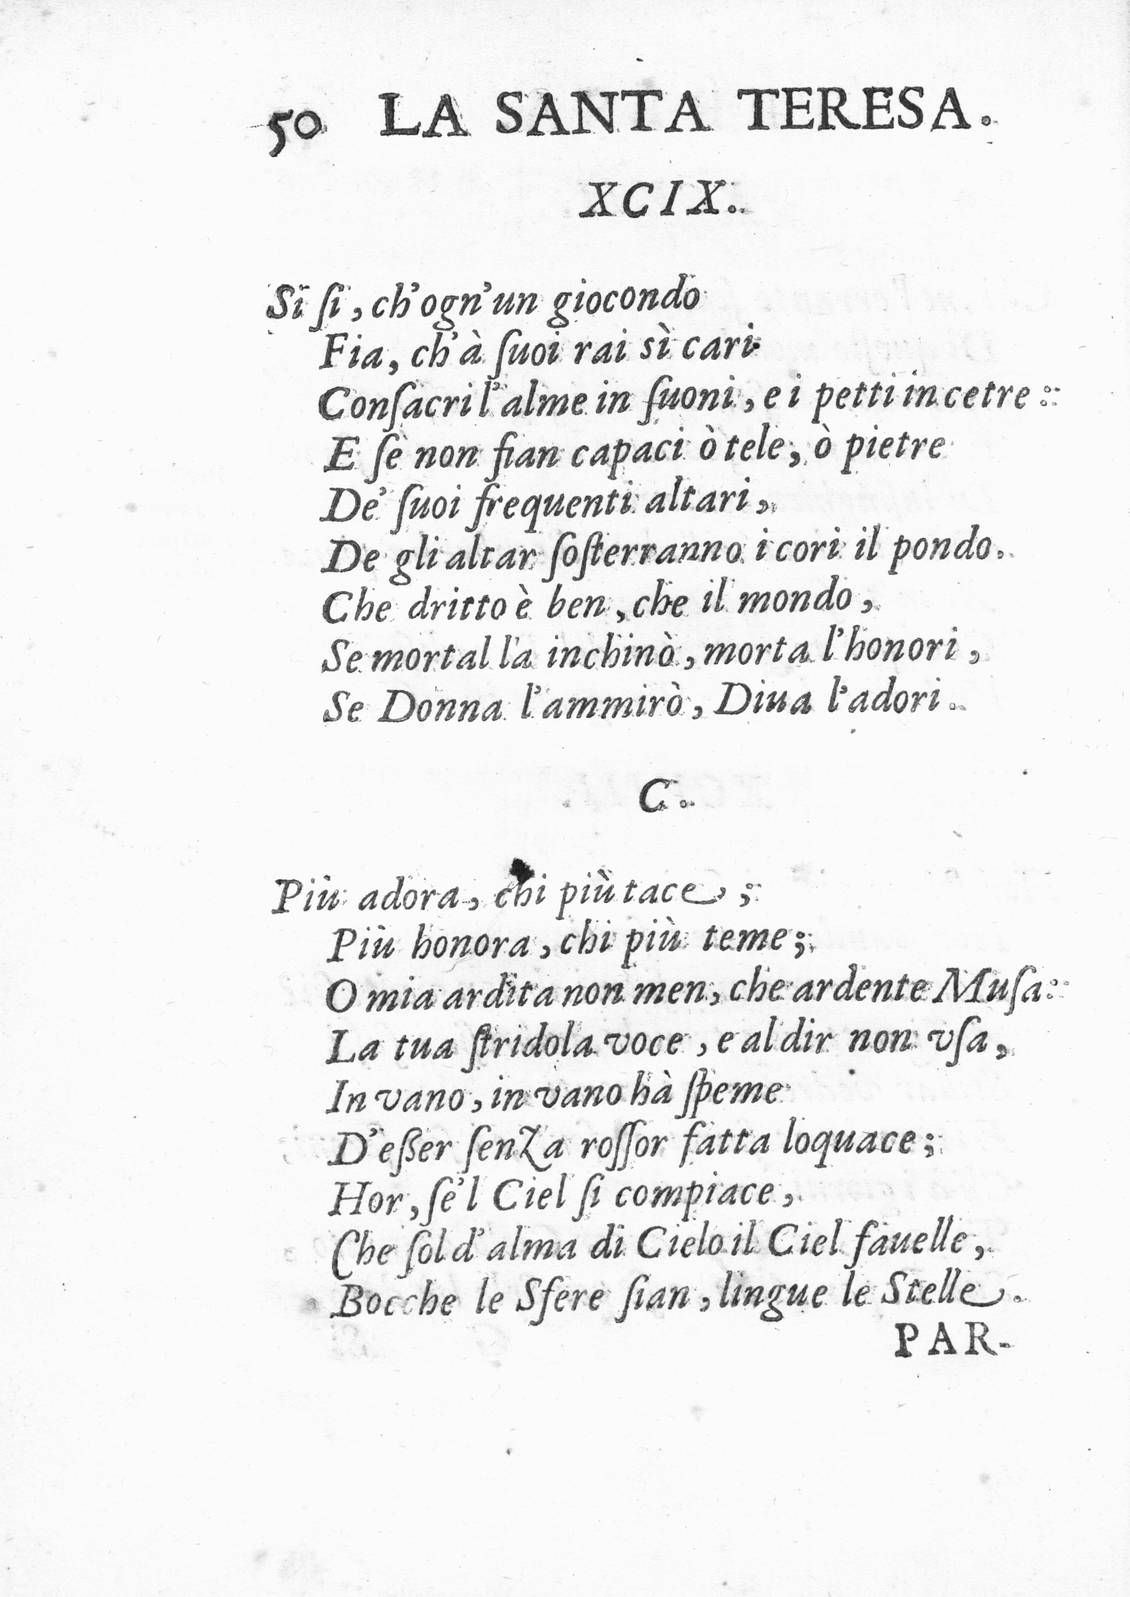 50 LA SANTA TERESA.
XCIX.
Sì ſi, ch'ogn'un giocondo
Fia, ch'à ſuoi rai sì cari
Conſacri l'alme in ſuoni, e i petti in cetre:
E ſe non fian capaci ò tele, ò pietre
De' ſuoi frequenti altari,
De gli altar ſoſterranno i cori il pondo.
Che dritto è ben, che il mondo,
Se mortal l'a inchinò, morta l'honori,
Se Donna l'ammirò, Diua l'adori.
C.
Più adora, chi più tace;
Più honora, chi più teme;
O mia ardita non men, che ardente Muſa:
La tua ſtridola voce, e al dir non vſa,
In vano, in vano hà ſpeme
D'eßer ſenza roſſor fatta loquace;
Hor, ſe'l Ciel ſi compiace,
Che ſol d'alma di Cielo il Ciel fauelle,
Bocche le Sfere ſian, lingue le Stelle.
PAR-